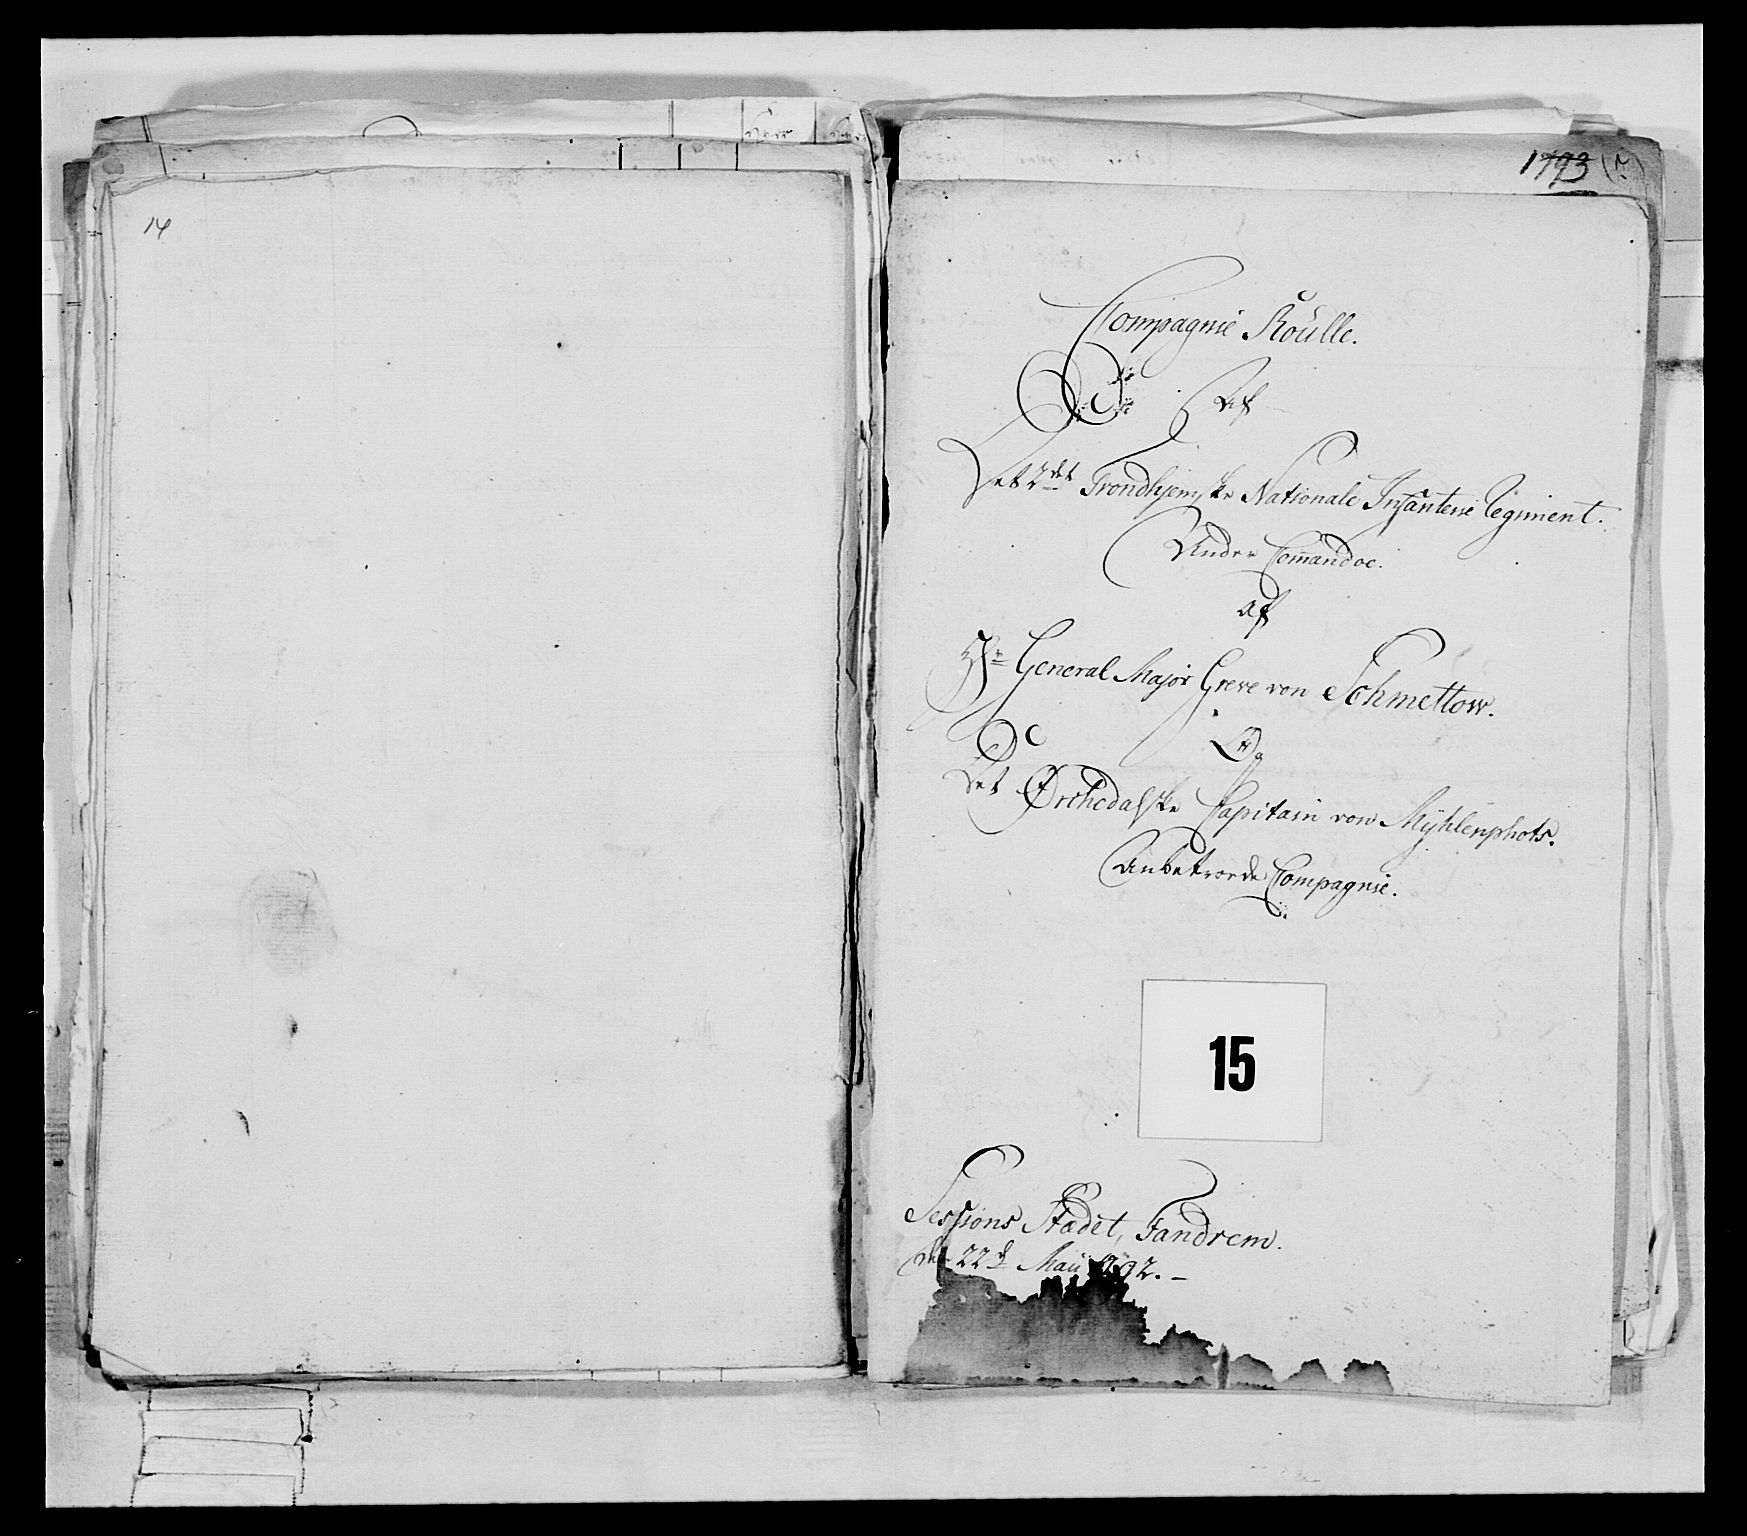 14
1793 (?)
Compagnie Roülle.
Af
Det 2det Trondhjemske Nationale Infanterie Regiment.
Under Com̄andoe.
af
Hr General Major Greve von Schmettow.
Og
Det Ørchedalske Capitain von Mÿhlenphots.
Anbetroede Compagnie.
15
Sessions Stædet, Fandrem.
den 22d Maÿ 1792.